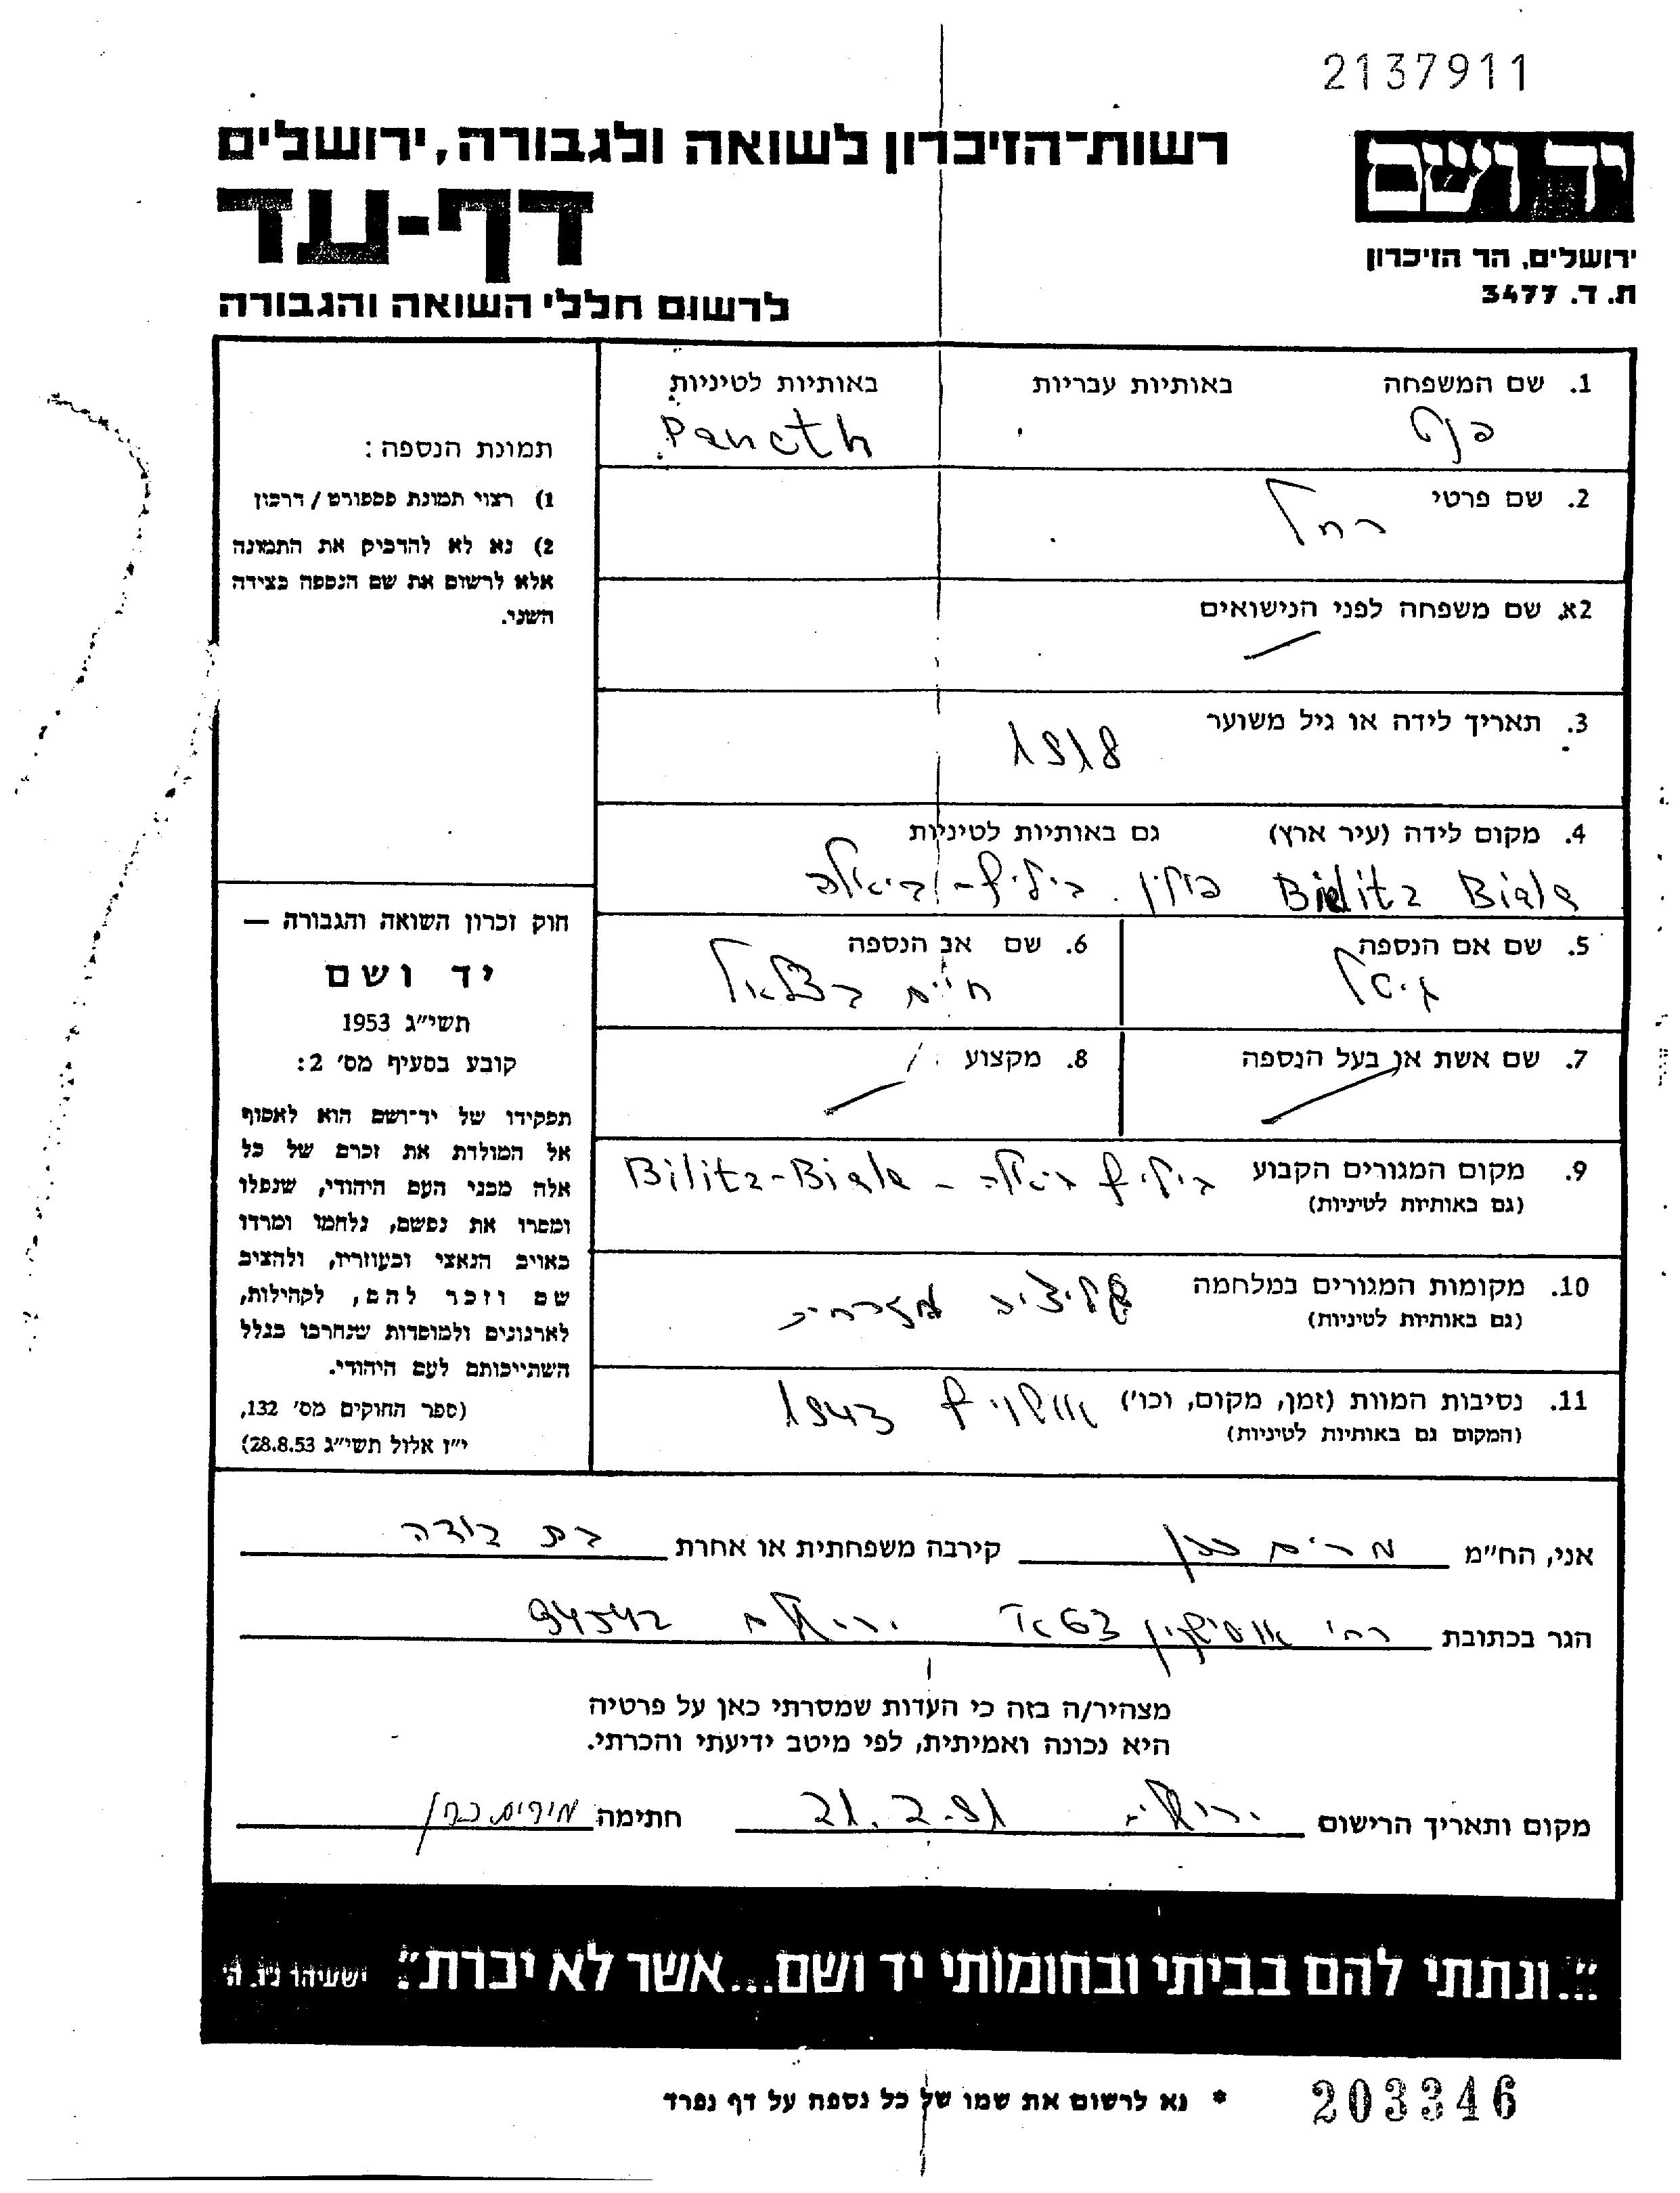 2137911
רשות־הזיכרון לשואה ולגבורה, ירושלים
יד ושם
דף-עד
ירושלים, הר הזיכרון
ת. ד. 3477
לרשום חללי השואה והגבורה
1. שם המשפחה באותיות עבריות באותיות לטיניות
פנט Paneth
2. שם פרטי
רחל
2א. שם משפחה לפני הנישואים
3. תאריך לידה או גיל משוער
1918
4. מקום לידה (עיר ארץ) גם באותיות לטיניות
Bielitz Biala פולין. ביליץ-ביאלה
5. שם אם הנספה
גיטל
6. שם אב הנספה
חיים בצלאל
7. שם אשת או בעל הנספה
8. מקצוע
9. מקום המגורים הקבוע ביליץ ביאלה - Bilitz-Biala
(גם באותיות לטיניות)
10. מקומות המגורים במלחמה גליציה מזרחית
(גם באותיות לטיניות)
11. נסיבות המוות (זמן, מקום, וכו') אושויץ 1943
(המקום גם באותיות לטיניות)
תמונת הנספה:
1) רצוי תמונת פספורט / דרכון
2) נא לא להדביק את התמונה
אלא לרשום את שם הנספה בצידה
השני.
חוק זכרון השואה והגבורה —
יד ושם
תשי"ג 1953
קובע בסעיף מס' 2:
תפקידו של יד־ושם הוא לאסוף
אל המולדת את זכרם של כל
אלה מבני העם היהודי, שנפלו
ומסרו את נפשם, נלחמו ומרדו
באויב הנאצי ובעוזריו, ולהציב
שם וזכר להם, לקהילות,
לארגונים ולמוסדות שנחרבו בגלל
השתייכותם לעם היהודי.
(ספר החוקים מס' 132,
י"ז אלול תשי"ג 28.8.53)
אני, הח"מ מרים כהן קירבה משפחתית או אחרת בת דודה
הגר בכתובת רח' אוסישקין ירושלים 94542
מצהיר/ה בזה כי העדות שמסרתי כאן על פרטיה
היא נכונה ואמיתית, לפי מיטב ידיעתי והכרתי.
מקום ותאריך הרישום 21.2.91 חתימה מרים כהן
"...ונתתי להם בביתי ובחומותי יד ושם...אשר לא יכרת" ישעיהו נ"ו, ה'
* נא לרשום את שמו של כל נספה על דף נפרד
203346